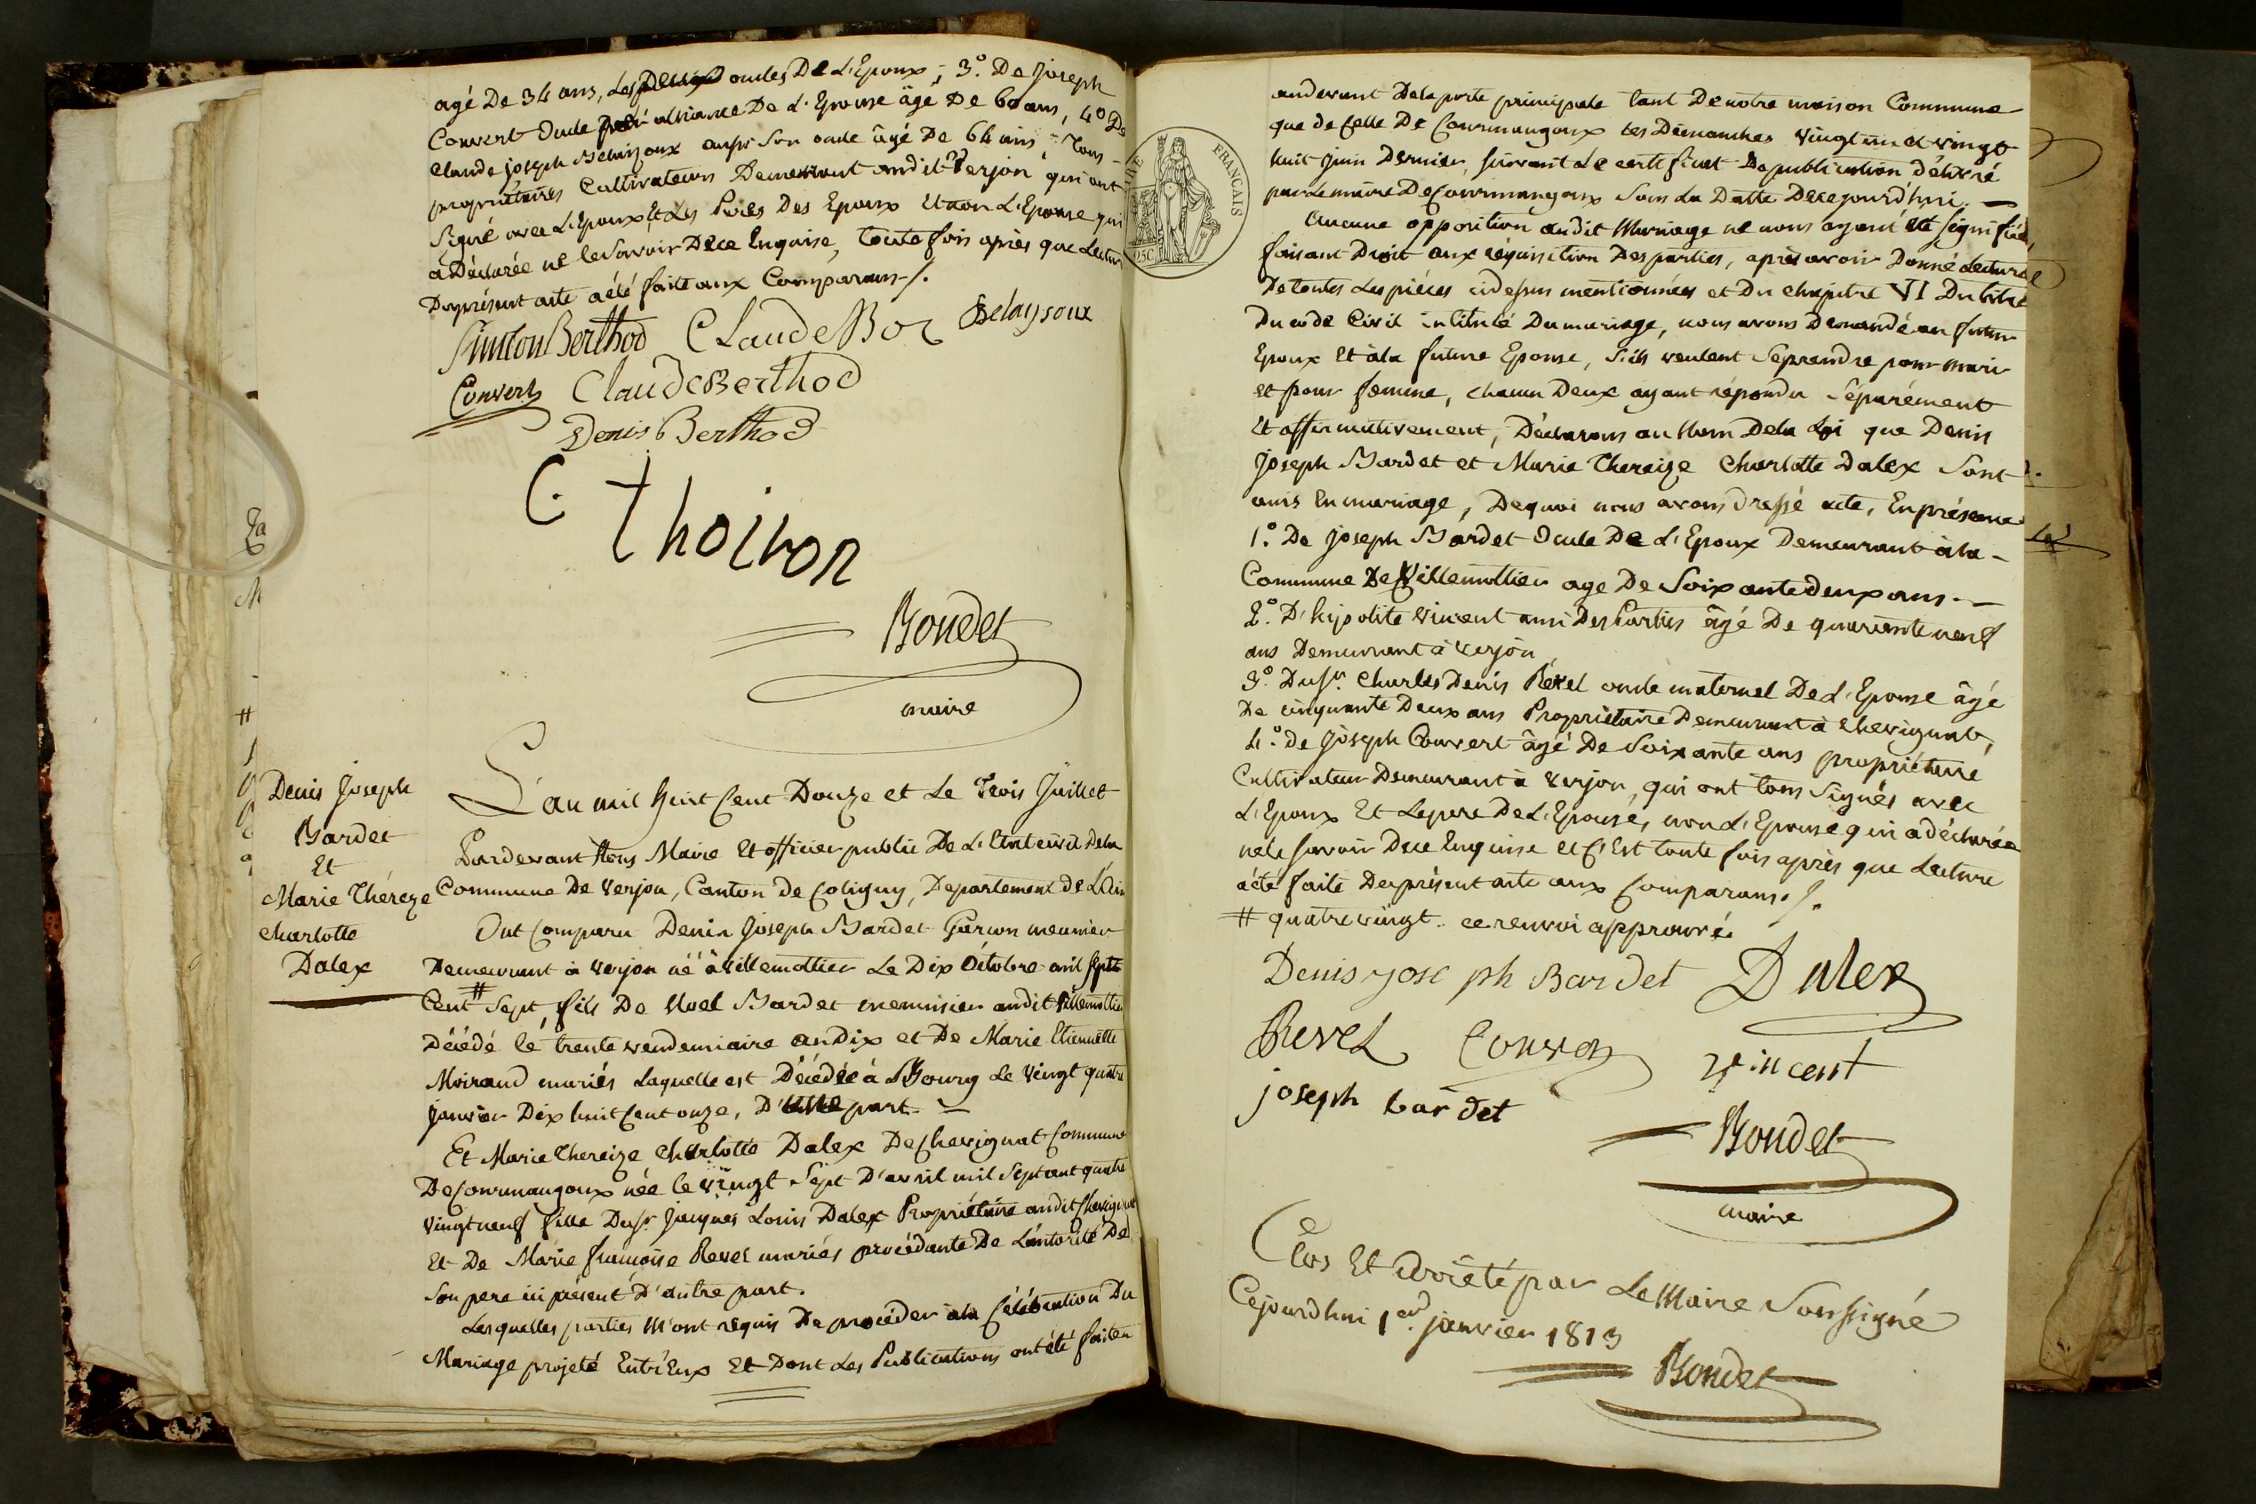 agé De 34 ans, Les Deux oncles De L'Epoux; 3.º De Joseph
Convert Oncle par alliance De L'Epouse âgé De 60 ans, 4º De
Claude joseph Delaysoux aussi Son oncle âgé De 64 ans; Tous
propriétaires Cultivateurs Demeurant audit Verjon qui ont
Signé avec L'Epoux, Et Les Peres Des Epoux Et non L'Epouse qui
a Déclarée ne le Savoir De ce Enquise, toute fois après que Lecture
Du présent acte a été faite aux Comparans ./.
Simeon Berthod Claude Boz Delaysoux
Convert Claude Berthod
Denis Berthod
C. thoiron
Bondet
maire
Denis Joseph
Bardet
Et
Marie Théreze
Charlotte
Dalex
L'an mil huit Cent Douze et Le Trois Juillet
Pardevant Nous Maire Et officier public De L'Etat civil De la
Commune De Verjon, Canton de Coligny, Departement De L'Ain
Ont Comparu Denis Joseph Bardet Garcon meunier
Demeurant à Verjon né à Villemottier Le Dix Octobre mil Sept
Cent # Sept, fils De Noel Bardet menuisier audit Villemottier
Décédé le trente vendemiaire an Dix et De Marie Etiennette
Moirand mariés Laquelle est Décédée à Bourg Le Vingt quatre
janvier Dix huit Cent onze, D'une part.
Et Marie Thereize Charlotte Dalex De Chevignat Commune
De Courmangoux née le vingt Sept D'avril mil Sept cent quatre
vingt neuf fille Du Sr. Jacques Louis Dalex Propriétaire audit Chevignat
Et De Marie françoise Revel mariés procédante De L'autorité De
Son pere ici présent D'autre part.
Lesquelles parties M'ont requis De procéder à la Célébration Du
Mariage projeté Entr'Eux Et Dont Les Publications ont été faites
audevant De la porte principale tant De notre maison Commune
que de Celle De Courmangoux les Dimanches Vingt un et vingt
huit juin Dernier, Suivant Le certificat De publication Délivré
par Le maire De Courmangoux Sous La Datte De ce jourd'hui.
Aucune opposition audit Mariage ne nous ayant été Signifiée,
faisant Droit aux réquisition Des parties, après avoir Donné Lecture
De toutes Les piéces cidessus mentionnées et Du chapitre VI Du titre
Du code Civil intitulé Du mariage, nous avons Demandé au futur
Epoux Et à la future Epouse, S'ils veulent Se prendre pour mari
et pour femme, chacun Deux ayant répondu Séparément
Et affirmativement, Déclarons au Nom De la Loi que Denis
Joseph Bardet et Marie Thereize Charlotte Dalex Sont
unis En mariage, De quoi nous avons Dressé acte, En présence
1.º De Joseph Bardet Oncle De L'Epoux Demeurant à la
Commune De Villemottier age De Soixante deux ans.
2.º D'hipolite Vincent ami Des Parties âgé De quarante neuf
ans Demeurant à Verjon
3.º Du Sr. Charles Denis Revel oncle maternel De L'Epouse âgé
De cinquante Deux ans Propriétaire Demeurant à Chevignat,
4.º de Joseph Convert âgé De Soixante ans propriétaire
Cultivateur Demeurant à Verjon, qui ont tous Signés avec
L'Epoux Et Le pere De L'Epouse, non L'Epouse qui a déclarée
ne le Savoir De ce Enquise et C'Est toute fois après que Lecture
a été faite Du présent acte aux Comparans. /.
# quatre vingt. ce renvoi approuvé.
Denis joseph Bardet Dalex
Revel Convert Vincent
joseph bardet
Bondet
maire
Clos Et arrêté par Le Maire Soussigné
Cejourdhui 1er. janvier 1813
Bondet
FRANÇAIS
25C